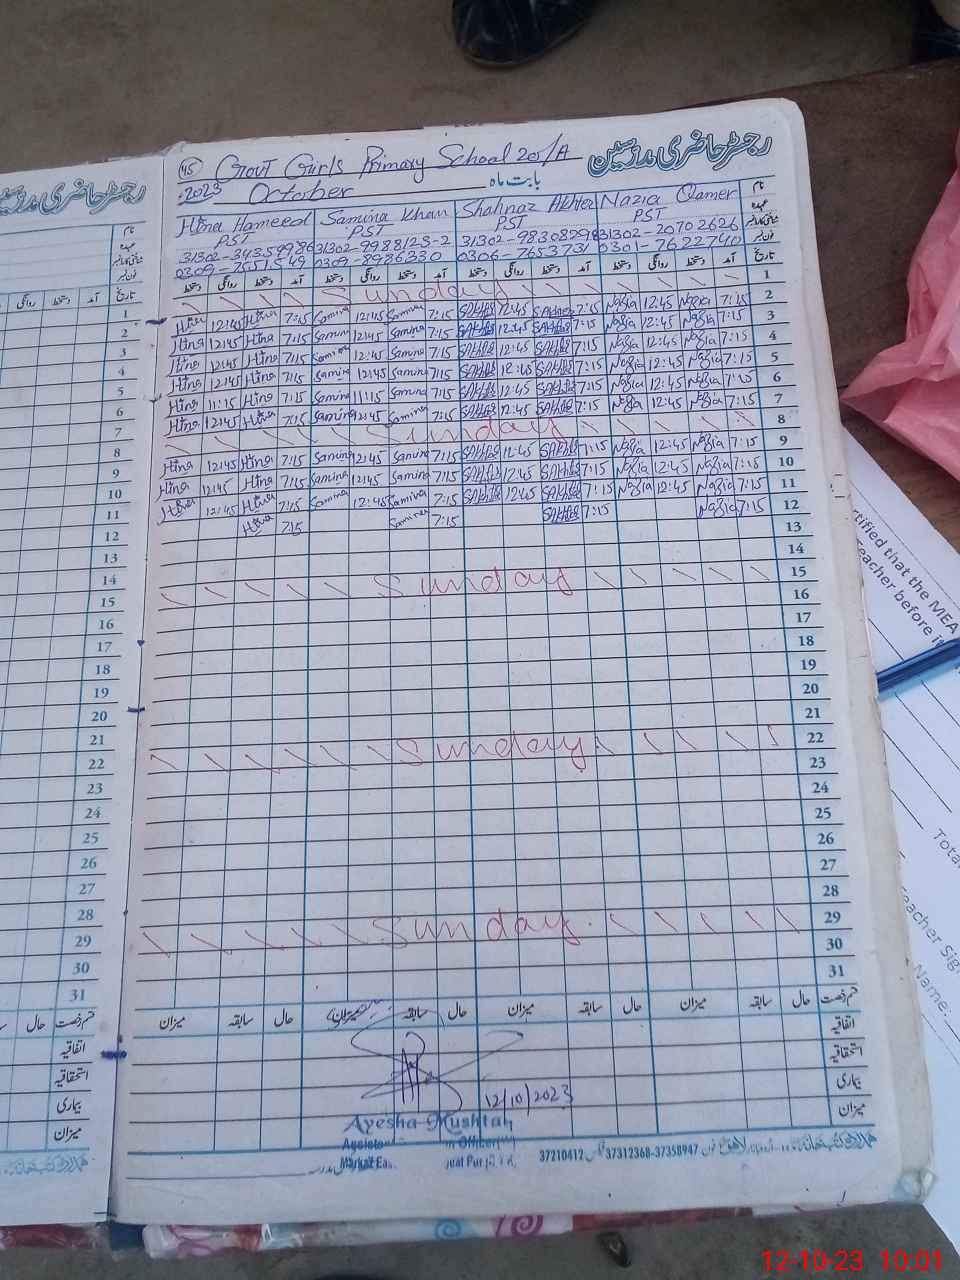 رجسٹر حاضری مدرسین
45 Govt Girls Primary School 20/A
2023 October بابت ماہ
Hina Hameed Samina Khan Shahnaz Akhter Nazia Qamer نام
PST PST PST PST عہدہ
0309-8986330 0306-7653731 0301-7622740 فون نمبر
دستخط روانگی دستخط آمد دستخط روانگی دستخط آمد دستخط روانگی دستخط آمد دستخط روانگی دستخط آمد تاریخ
Sunday 1
Hina 12:45 Hina 7:15 Samina 12:45 Samina 7:15 12:45 7:15 Nazia 12:45 Nazia 7:15 2
Hina 12:45 Hina 7:15 Samina 12:45 Samina 7:15 12:45 7:15 Nazia 12:45 Nazia 7:15 3
Hina 12:45 Hina 7:15 Samina 12:45 Samina 7:15 12:45 7:15 Nazia 12:45 Nazia 7:15 4
Hina 12:45 Hina 7:15 Samina 12:45 Samina 7:15 12:45 7:15 Nazia 12:45 Nazia 7:15 5
Hina 11:15 Hina 7:15 Samina 11:15 Samina 7:15 12:45 7:15 Nazia 12:45 Nazia 7:15 6
Hina 12:45 Hina 7:15 Samina 12:45 Samina 7:15 12:45 7:15 Nazia 12:45 Nazia 7:15 7
Sunday 8
Hina 12:45 Hina 7:15 Samina 12:45 Samina 7:15 12:45 7:15 Nazia 12:45 Nazia 7:15 9
Hina 12:45 Hina 7:15 Samina 12:45 Samina 7:15 12:45 7:15 Nazia 12:45 Nazia 7:15 10
Hina 12:45 Hina 7:15 Samina 12:45 Samina 7:15 12:45 7:15 Nazia 12:45 Nazia 7:15 11
Hina 7:15 Samina 7:15 7:15 Nazia 7:15 12
13
14
Sunday 15
16
17
18
19
20
21
Sunday 22
23
24
25
26
27
28
Sunday 29
30
31
میزان سابقہ حال میزان سابقہ حال میزان سابقہ حال میزان سابقہ حال قسم رخصت
اتفاقیہ
استحقاقیہ
بیماری
میزان
12/10/2023
Ayesha Mushtaq
37210412 37312368-37358947
رجسٹر حاضری مدرسین
دستخط روانگی دستخط آمد تاریخ
1
2
3
4
5
6
7
8
9
10
11
12
13
14
15
16
17
18
19
20
21
22
23
24
25
26
27
28
29
30
31
حال قسم رخصت
اتفاقیہ
استحقاقیہ
بیماری
میزان
rtified that the MEA
Teacher before
Tota
eacher Sig
Name:
12-10-23 10:01